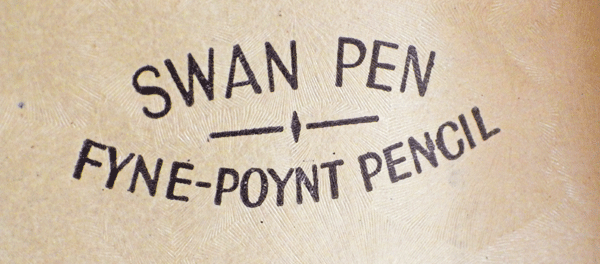 SWAN PEN
FYNE-POYNT PENCIL